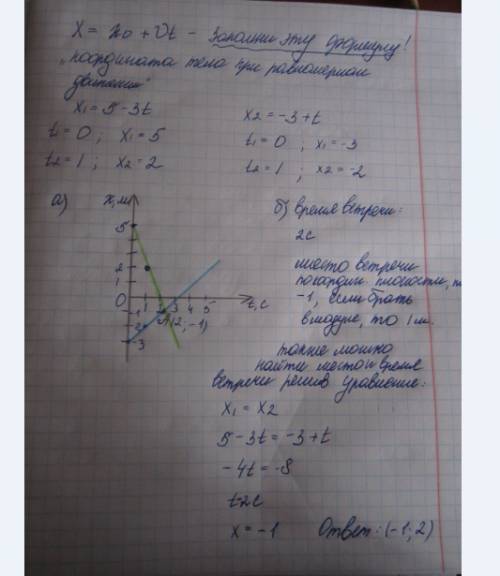 X = x₀ + υt – Запомни эту формулу!
"координата тела при равномерном
движении"
x₁ = 5 - 3t
t₁ = 0 ; x₁ = 5
t₂ = 1 ; x₂ = 2
x₂ = -3 + t
t₁ = 0 ; x₁ = -3
t₂ = 1 ; x₂ = -2
а)
x, м
5
2
1
0
-1
-2
-3
1 3 4 5
t, с
A(2; -1)
б) время встречи:
2с
место встречи
по плоскости,
-1, если брать
в модуле, то 1м.
также можно
найти место и время
встречи решив уравнение:
x₁ = x₂
5 - 3t = -3 + t
-4t = -8
t=2с
x = -1 Ответ: (-1; 2)